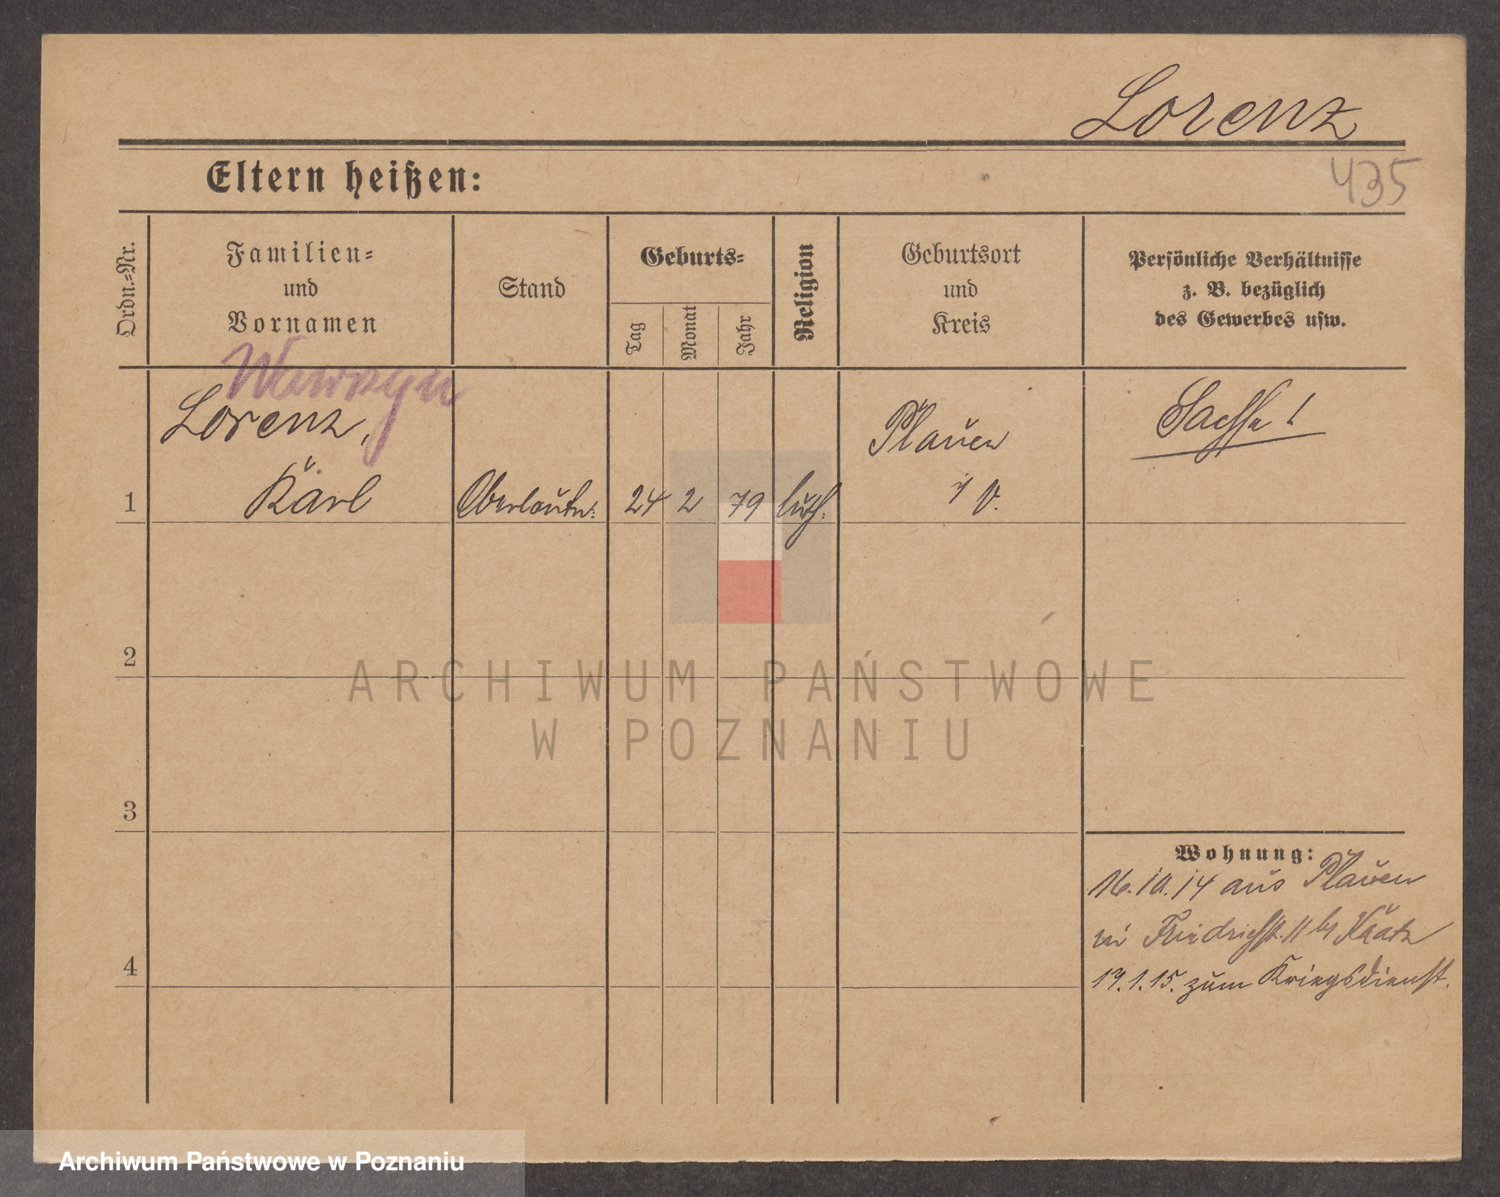 Lorenz
435
Eltern heißen:
Ordn.-Nr.
Familien-
und
Vornamen
Stand
Geburts-
Tag
Monat
Jahr
Religion
Geburtsort
und
Kreis
Persönliche Verhältnisse
z. B. bezüglich
des Gewerbes usw.
Wawrzyn
Lorenz,
Karl
1
Oberleutn:
24
2
79
luth.
Plauen
i/ V.
Sachse!
2
3
4
Wohnung:
16.10.14 aus Plauen
in Friedrichstr. 11 bei
19.1.15. zum Kriegsdienst.
ARCHIWUM PAŃSTWOWE
W POZNANIU
Archiwum Państwowe w Poznaniu